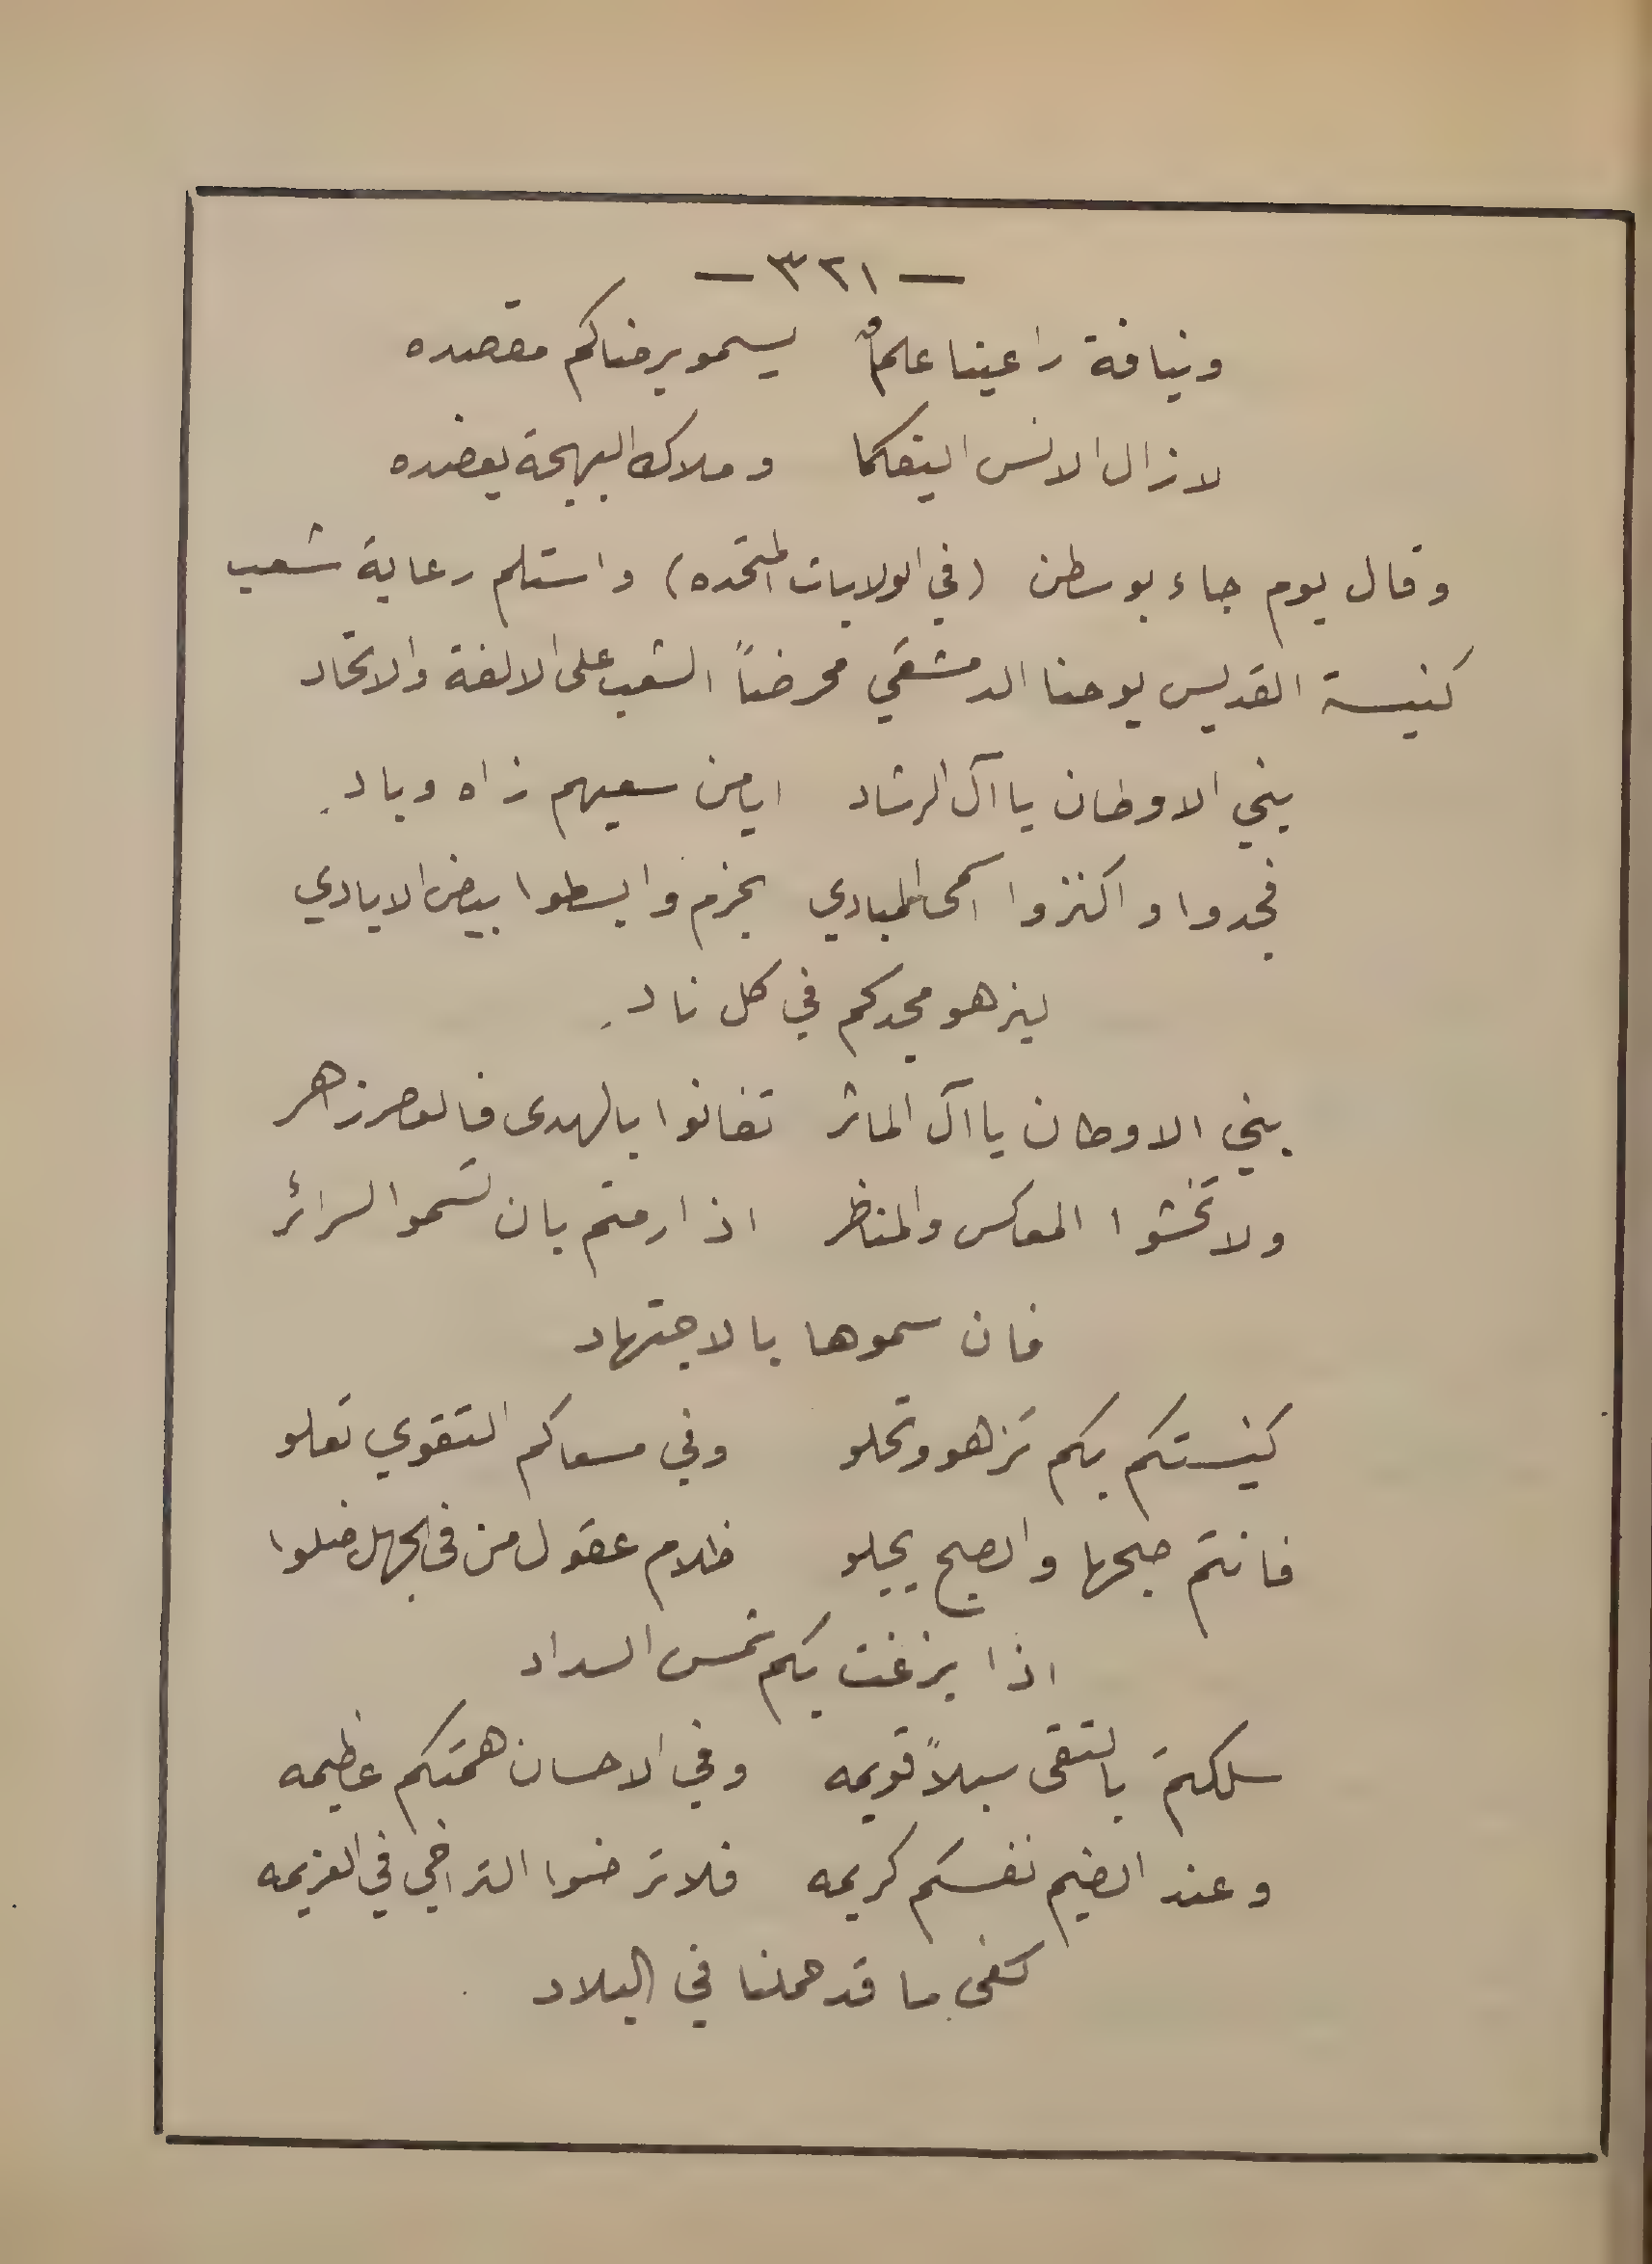 — ٣٢١ —
ونيافة راعينا علمٌ يسمو برضاكم مقصده
لا زال الانس اليفكما وملاك البهجة يعضده
وقال يوم جاء بوسطن (في الولايات المتحده) واستلم رعاية شعب
كنيسة القديس يوحنا الدمشقي محرضاً الشعب على الالفة والاتحاد
بني الاوطان يا آل الرشاد ايا من سعيهم زاه وبادِ
فجدوا واكنزوا اسمى المبادي بحزم وابسطوا بيض الايادي
ليزهو مجدكم في كل نادِ
بني الاوطان يا آل الماثر تفانوا بالهدى فالعصر زاهر
ولا تخشوا المعاكس والمناظر اذا رمتم بان تسموا السرائر
فان سموها بالاجتهاد
كنيستكم بكم تزهو وتحلو وفي مسعاكم التقوي تعلو
فانتم صبحها والصبح يجلو ظلام عقول من في الجهل ضلوا
اذا بزغت بكم شمس السداد
سلكتم بالتقى سبلاً قويمه وفي الاحسان همتكم عظيمه
وعند الضيم نفسكم كريمه فلا ترضوا التراخي في العزيمه
كفى ما قد حملنا في البلاد